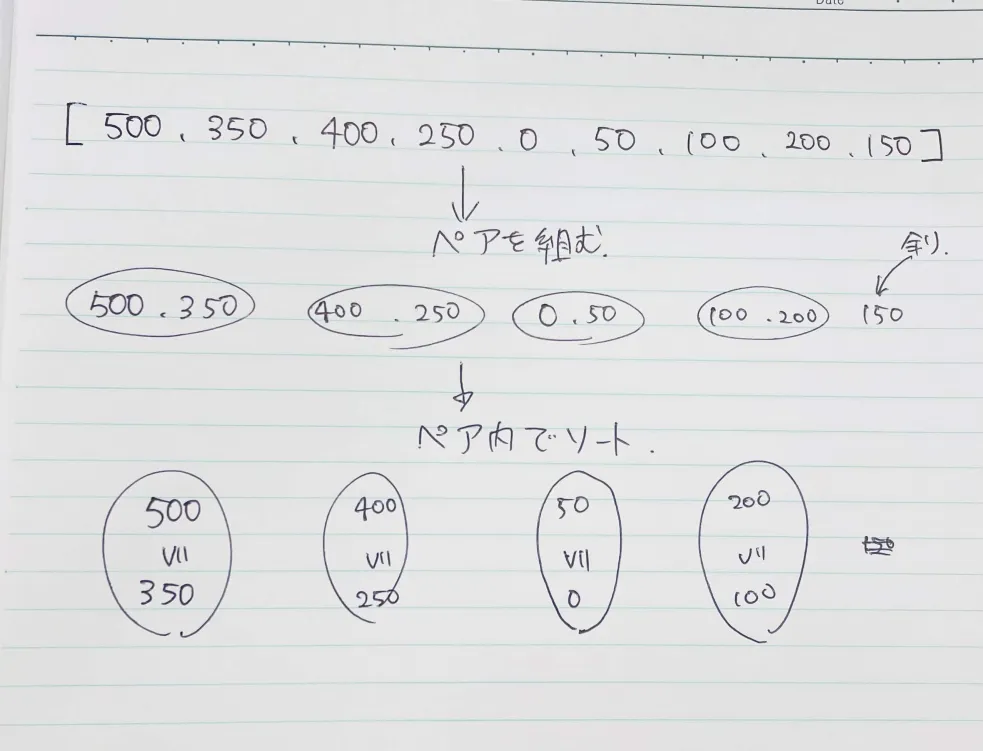 Date
[ 500 、 350 、 400 、 250 、 0 、 50 、 100 、 200 、 150 ]
ペアを組む.
余り.
500 、 350 400 、 250 0 、 50 100 、 200 150
ペア内でソート.
500 400 50 200
VII VII VII VII
350 250 0 100